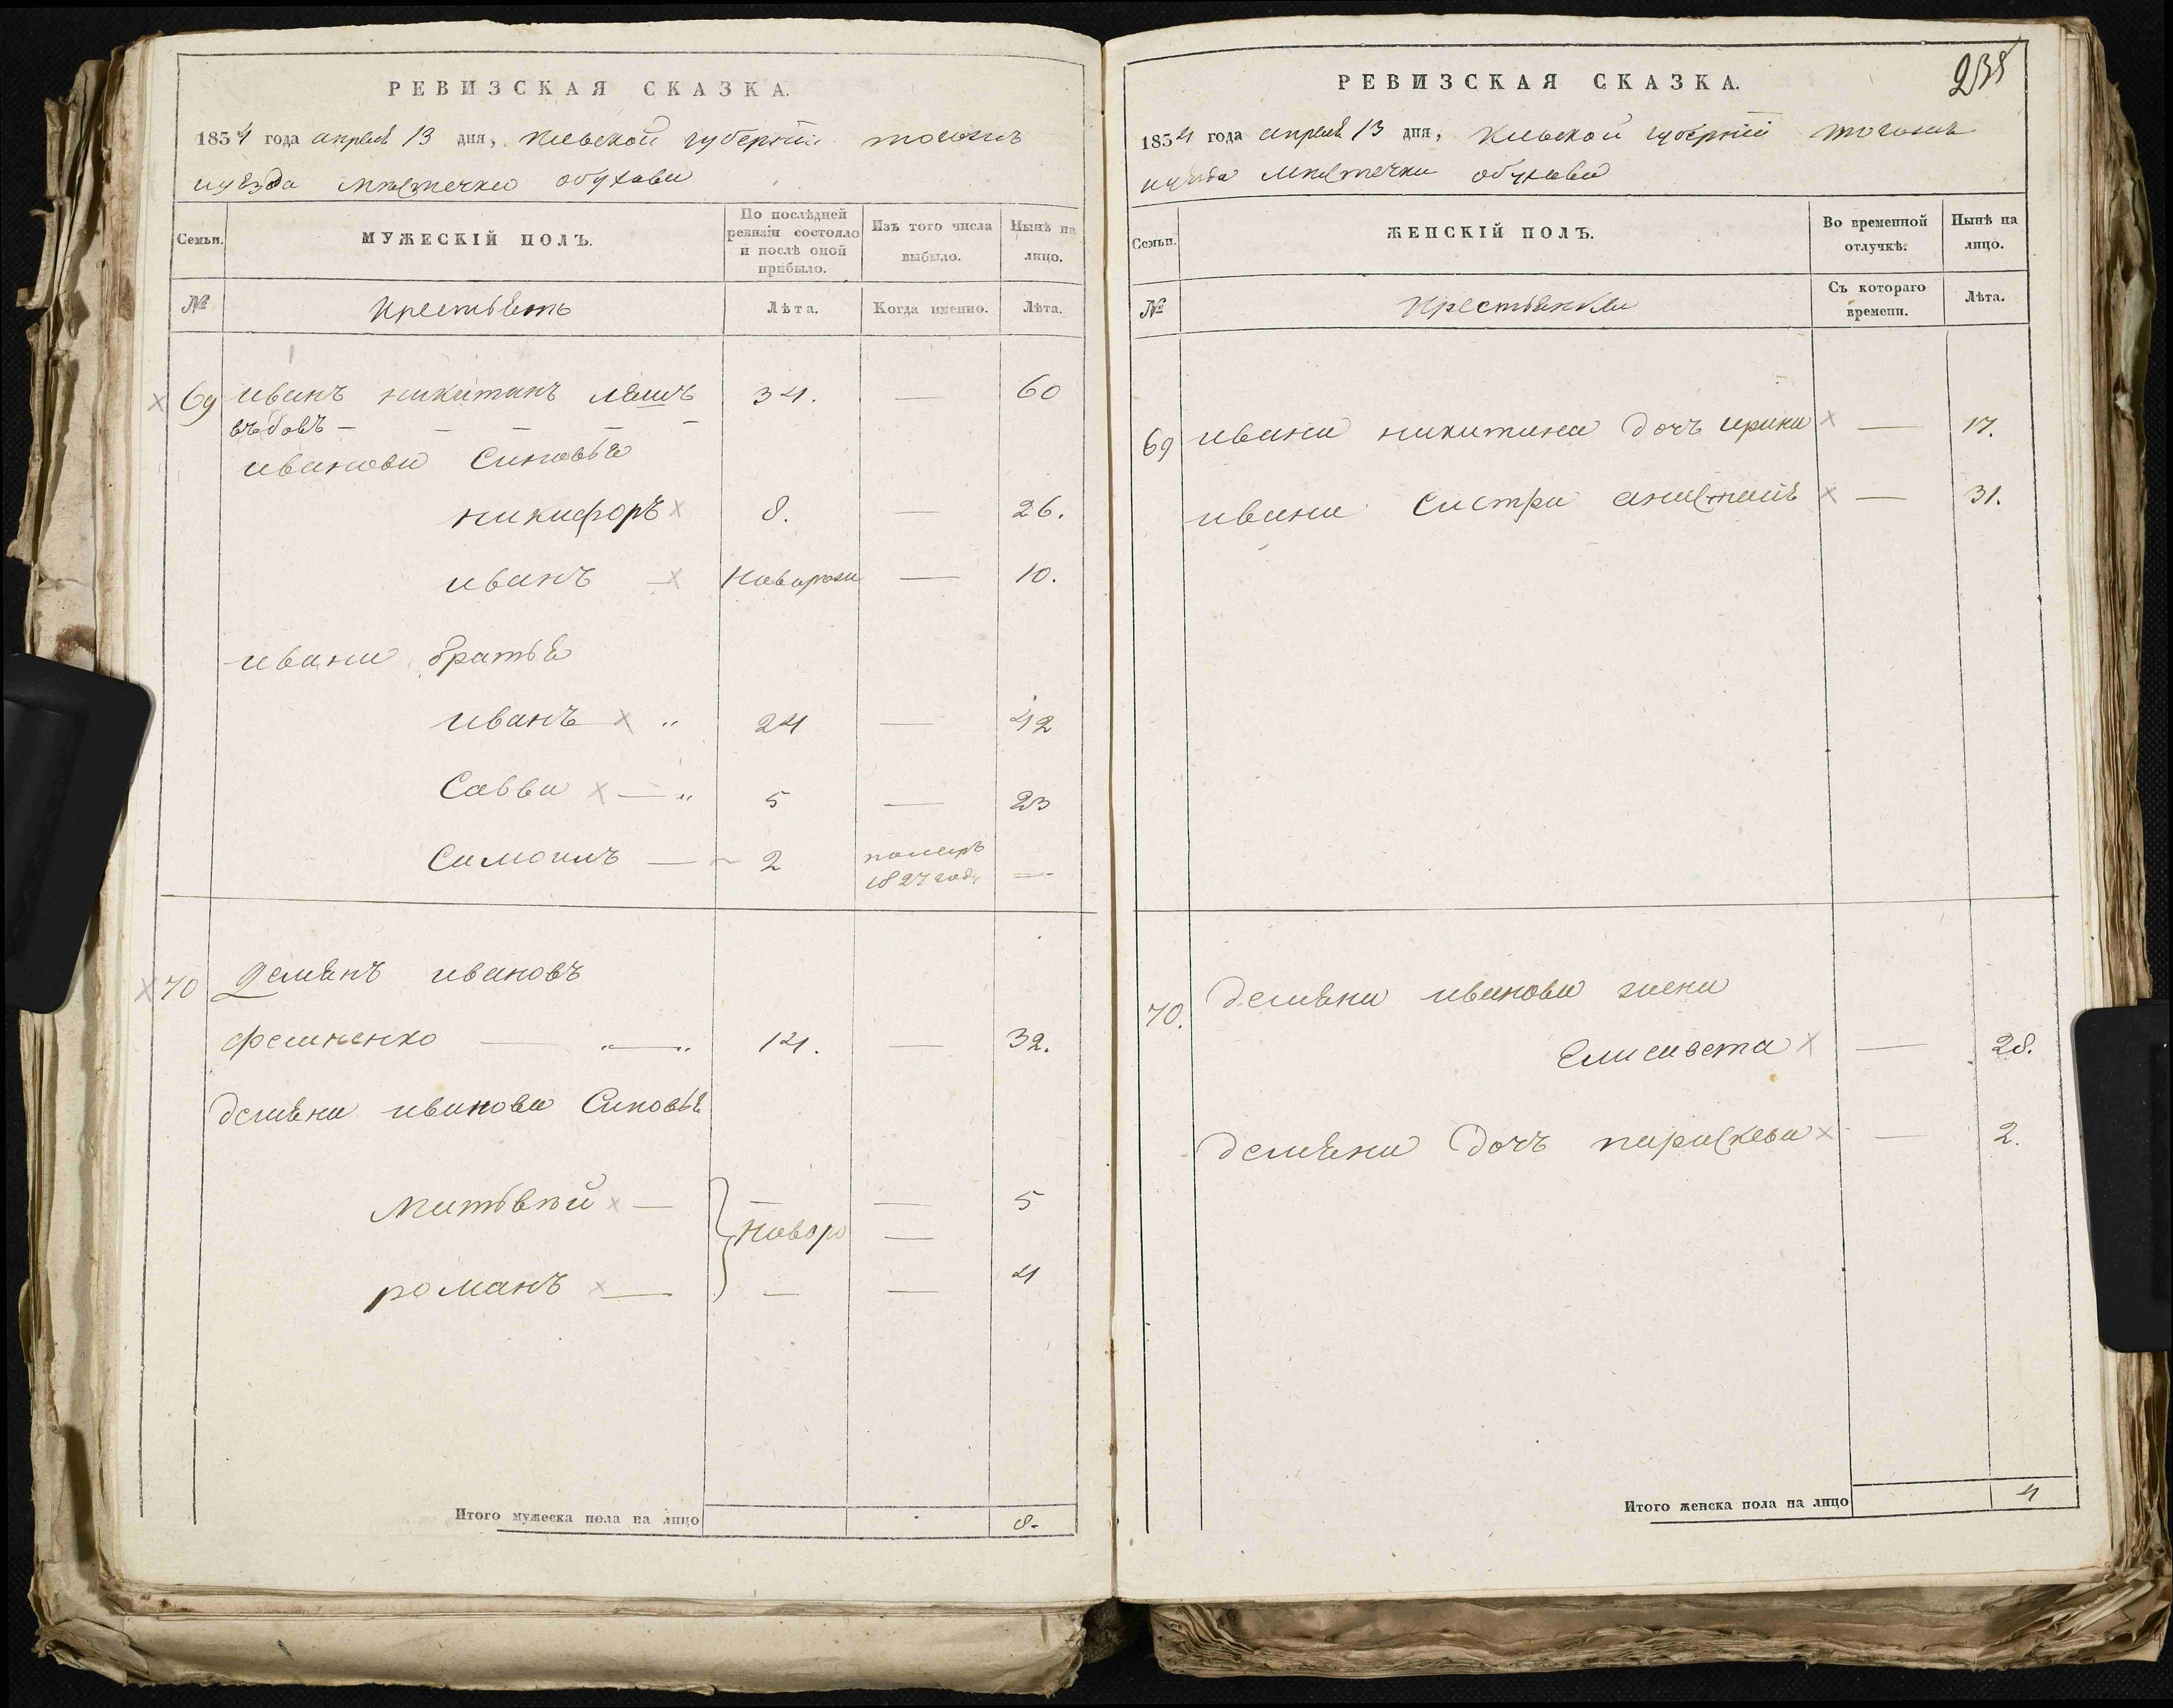 РЕВИЗСКАЯ СКАЗКА.
1834 года апреля 13 дня, Киевской губернии тогожъ
иуезда местечка обухова
Семьи.
МУЖЕСКІЙ ПОЛЪ.
По послѣдней ревизіи состояло и послѣ оной прибыло.
Изъ того числа выбыло.
Нынѣ на лицо.
№
Крестьянъ
Лѣта.
Когда именно.
Лѣта.
69 иванъ никитинъ 34. — 60
въдовъ — — — — —
иванови Синовья
никифоръ 8. — 26.
иванъ Наворож — 10.
ивани братья
иванъ 24 — 42
Савва 5 — 23
Самоилъ — 2 померъ 1827 года —
70 Демянъ ивановъ
14. — 32.
демяна иванова Синовья
Матвѣй — — — 5
Наворо —
романъ — — — 4
Итого мужеска пола на лицо 8.
РЕВИЗСКАЯ СКАЗКА.
1834 года апреля 13 дня, Киевской губернии тогожъ
иуезда местечка обухова
Семьи.
ЖЕНСКІЙ ПОЛЪ.
Во временной отлучкѣ.
Нынѣ на лицо.
№
Крестьянки
Съ котораго времени.
Лѣта.
69 ивана никитина дочъ ирина — 17.
ивана Систра анастасия — 31.
70. демяна иванова жена
Елисавета — 28.
демяна дочъ параскева — 2.
Итого женска пола на лицо 4